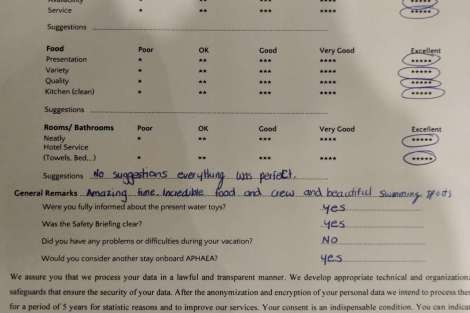 Service * ** *** **** *****
Suggestions
Food Poor OK Good Very Good Excellent
Presentation * ** *** **** *****
Variety * ** *** **** *****
Quality * ** *** **** *****
Kitchen (clean) * ** *** **** *****
Suggestions
Rooms/ Bathrooms Poor OK Good Very Good Excellent
Neatly * ** *** **** *****
Hotel Service
(Towels, Bed...) * ** *** **** *****
Suggestions No suggestions everything was perfect.
General Remarks Amazing time. Incredible food and crew and beautiful swimming spots
Were you fully informed about the present water toys? yes
Was the Safety Briefing clear? yes
Did you have any problems or difficulties during your vacation? NO
Would you consider another stay onboard APHAEA? yes
We assure you that we process your data in a lawful and transparent manner. We develop appropriate technical and organization
safeguards that ensure the security of your data. After the anonymization and encryption of your personal data we intend to process them
for a period of 5 years for statistic reasons and to improve our services. Your consent is an indispensable condition. You can indicat